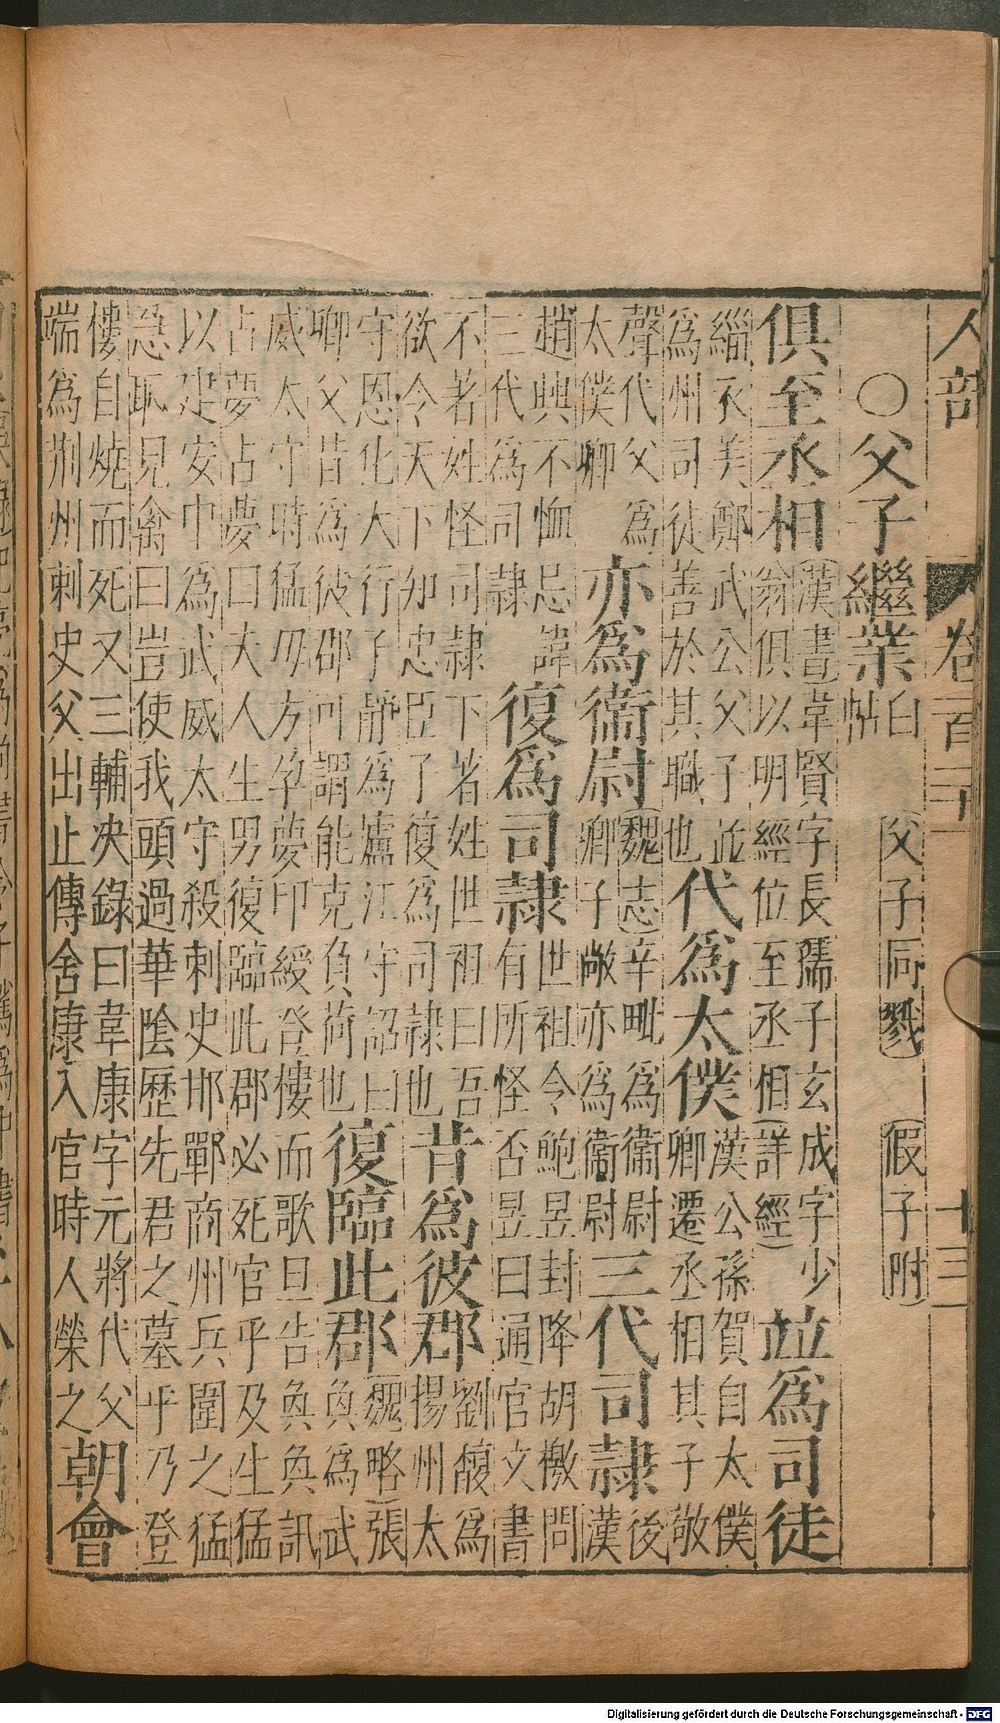 人部 卷一百二十 十三
○父子繼業 白帖 父子同戮 (假子附)
俱至丞相 (漢書)韋賢字長孺子玄成字少翁俱以明經位至丞相(詳經) 並爲司徒
緇衣美鄭武公父子並爲州司徒善於其職也 代爲太僕 漢公孫賀自太僕卿遷丞相其子敬
聲代父爲太僕卿 亦爲衞尉 (魏志)辛毗爲衞尉卿子敞亦爲衞尉 三代司隸 後漢
趙興不恤忌諱三代爲司隸 復爲司隸 世祖令鮑昱封降胡檄問有所怪否昱曰通官文書
不著姓怪司隸下著姓世祖曰吾欲令天下知忠臣子復爲司隸也 昔爲彼郡 劉馥爲揚州太
守恩化大行子靜爲廬江守詔曰卿父昔爲彼郡可謂能克負荷也 復臨此郡 (魏略)張奐爲武
威太守時猛母方孕夢印綬登樓而歌旦告奐奐訊占夢占夢曰夫人生男復臨此郡必死官乎及生猛
以建安中爲武威太守殺刺史邯鄲商州兵圍之猛急恥見禽曰豈使我頭過華陰歷先君之墓乎乃登
樓自燒而死又三輔決錄曰韋康字元將代父端爲荆州刺史父出止傳舍康入官時人榮之 朝會
Digitalisierung gefördert durch die Deutsche Forschungsgemeinschaft - DFG